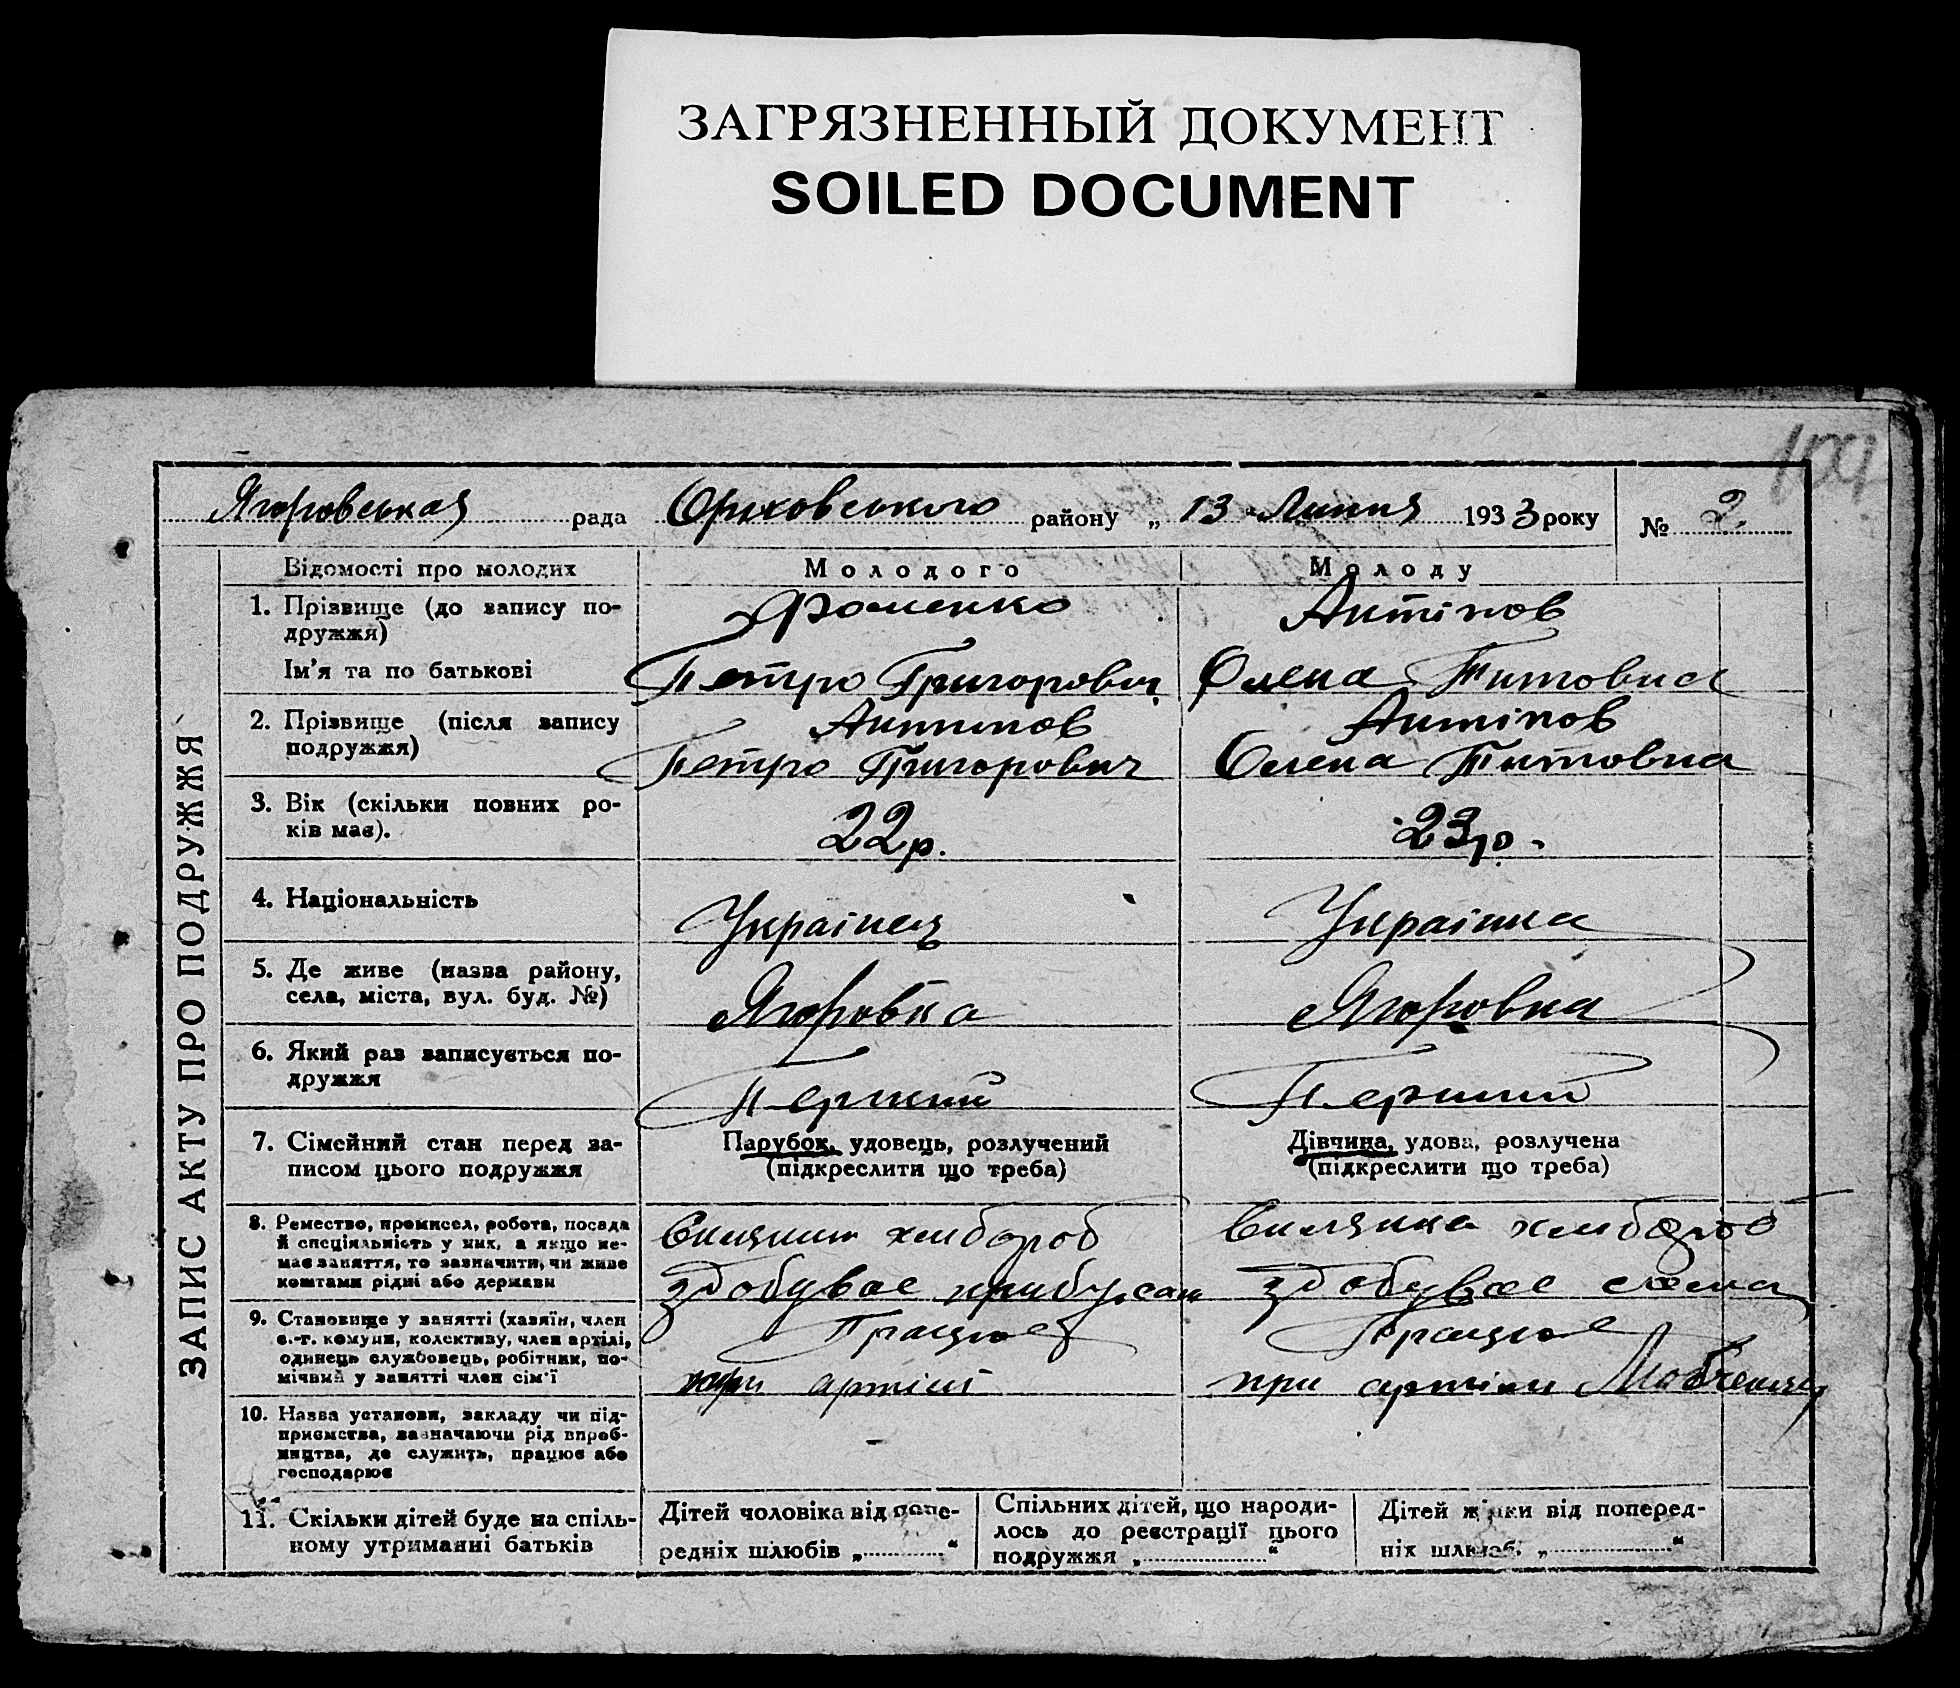 ЗАГРЯЗНЕННЫЙ ДОКУМЕНТ
SOILED DOCUMENT
Ягоровськая рада Оріховського району „ 13 " Липня 1933 року № 2.
ЗАПИС АКТУ ПРО ПОДРУЖЖЯ
Відомості про молодих Молодого Молоду
1. Прізвище (до запису по- Фоменко Антіпов
дружжя)
Ім'я та по батькові Петро Григорович Олена Титовна
2. Прізвище (після запису Антипов Антіпов
подружжя) Петро Григорович Олена Титовна
3. Вік (скільки повних ро-
ків має). 22 р. 23 р.
4. Національність Українець Українка
5. Де живе (назва району,
села, міста, вул. буд. №) Ягоровка Ягоровка
6. Який раз записується по-
дружжя Перший Перший
7. Сімейний стан перед за- Парубок, удовець, розлучений Дівчина, удова, розлучена
писом цього подружжя (підкреслити що треба) (підкреслити що треба)
8. Ремество, промисел, робота, посада
й спеціяльність у них, а якщо не- хлибороб хлибороб
має заняття, то зазначити, чи живе
коштами рідні або держави здобувае здобувае сама
9. Становище у занятті (хазяїн, член Працює Працює
с.-г. комуни, колективу, член артілі,
одинець службовець, робітник, по- при артілі при артіли
мічний у занятті член сім'ї
10. Назва установи, закладу чи під-
приємства, зазначаючи рід вироб-
ництва, де служить, працює або
господарює
11. Скільки дітей буде на спіль- Дітей чоловіка від попе- Спільних дітей, що народи- Дітей жінки від поперед-
ному утриманні батьків редніх шлюбів „ " лось до реєстрації цього ніх шлюбі „ "
подружжя „ "